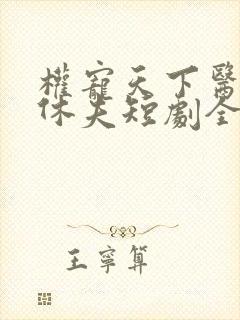 權寵天下醫
休夫短劇全
王寧算